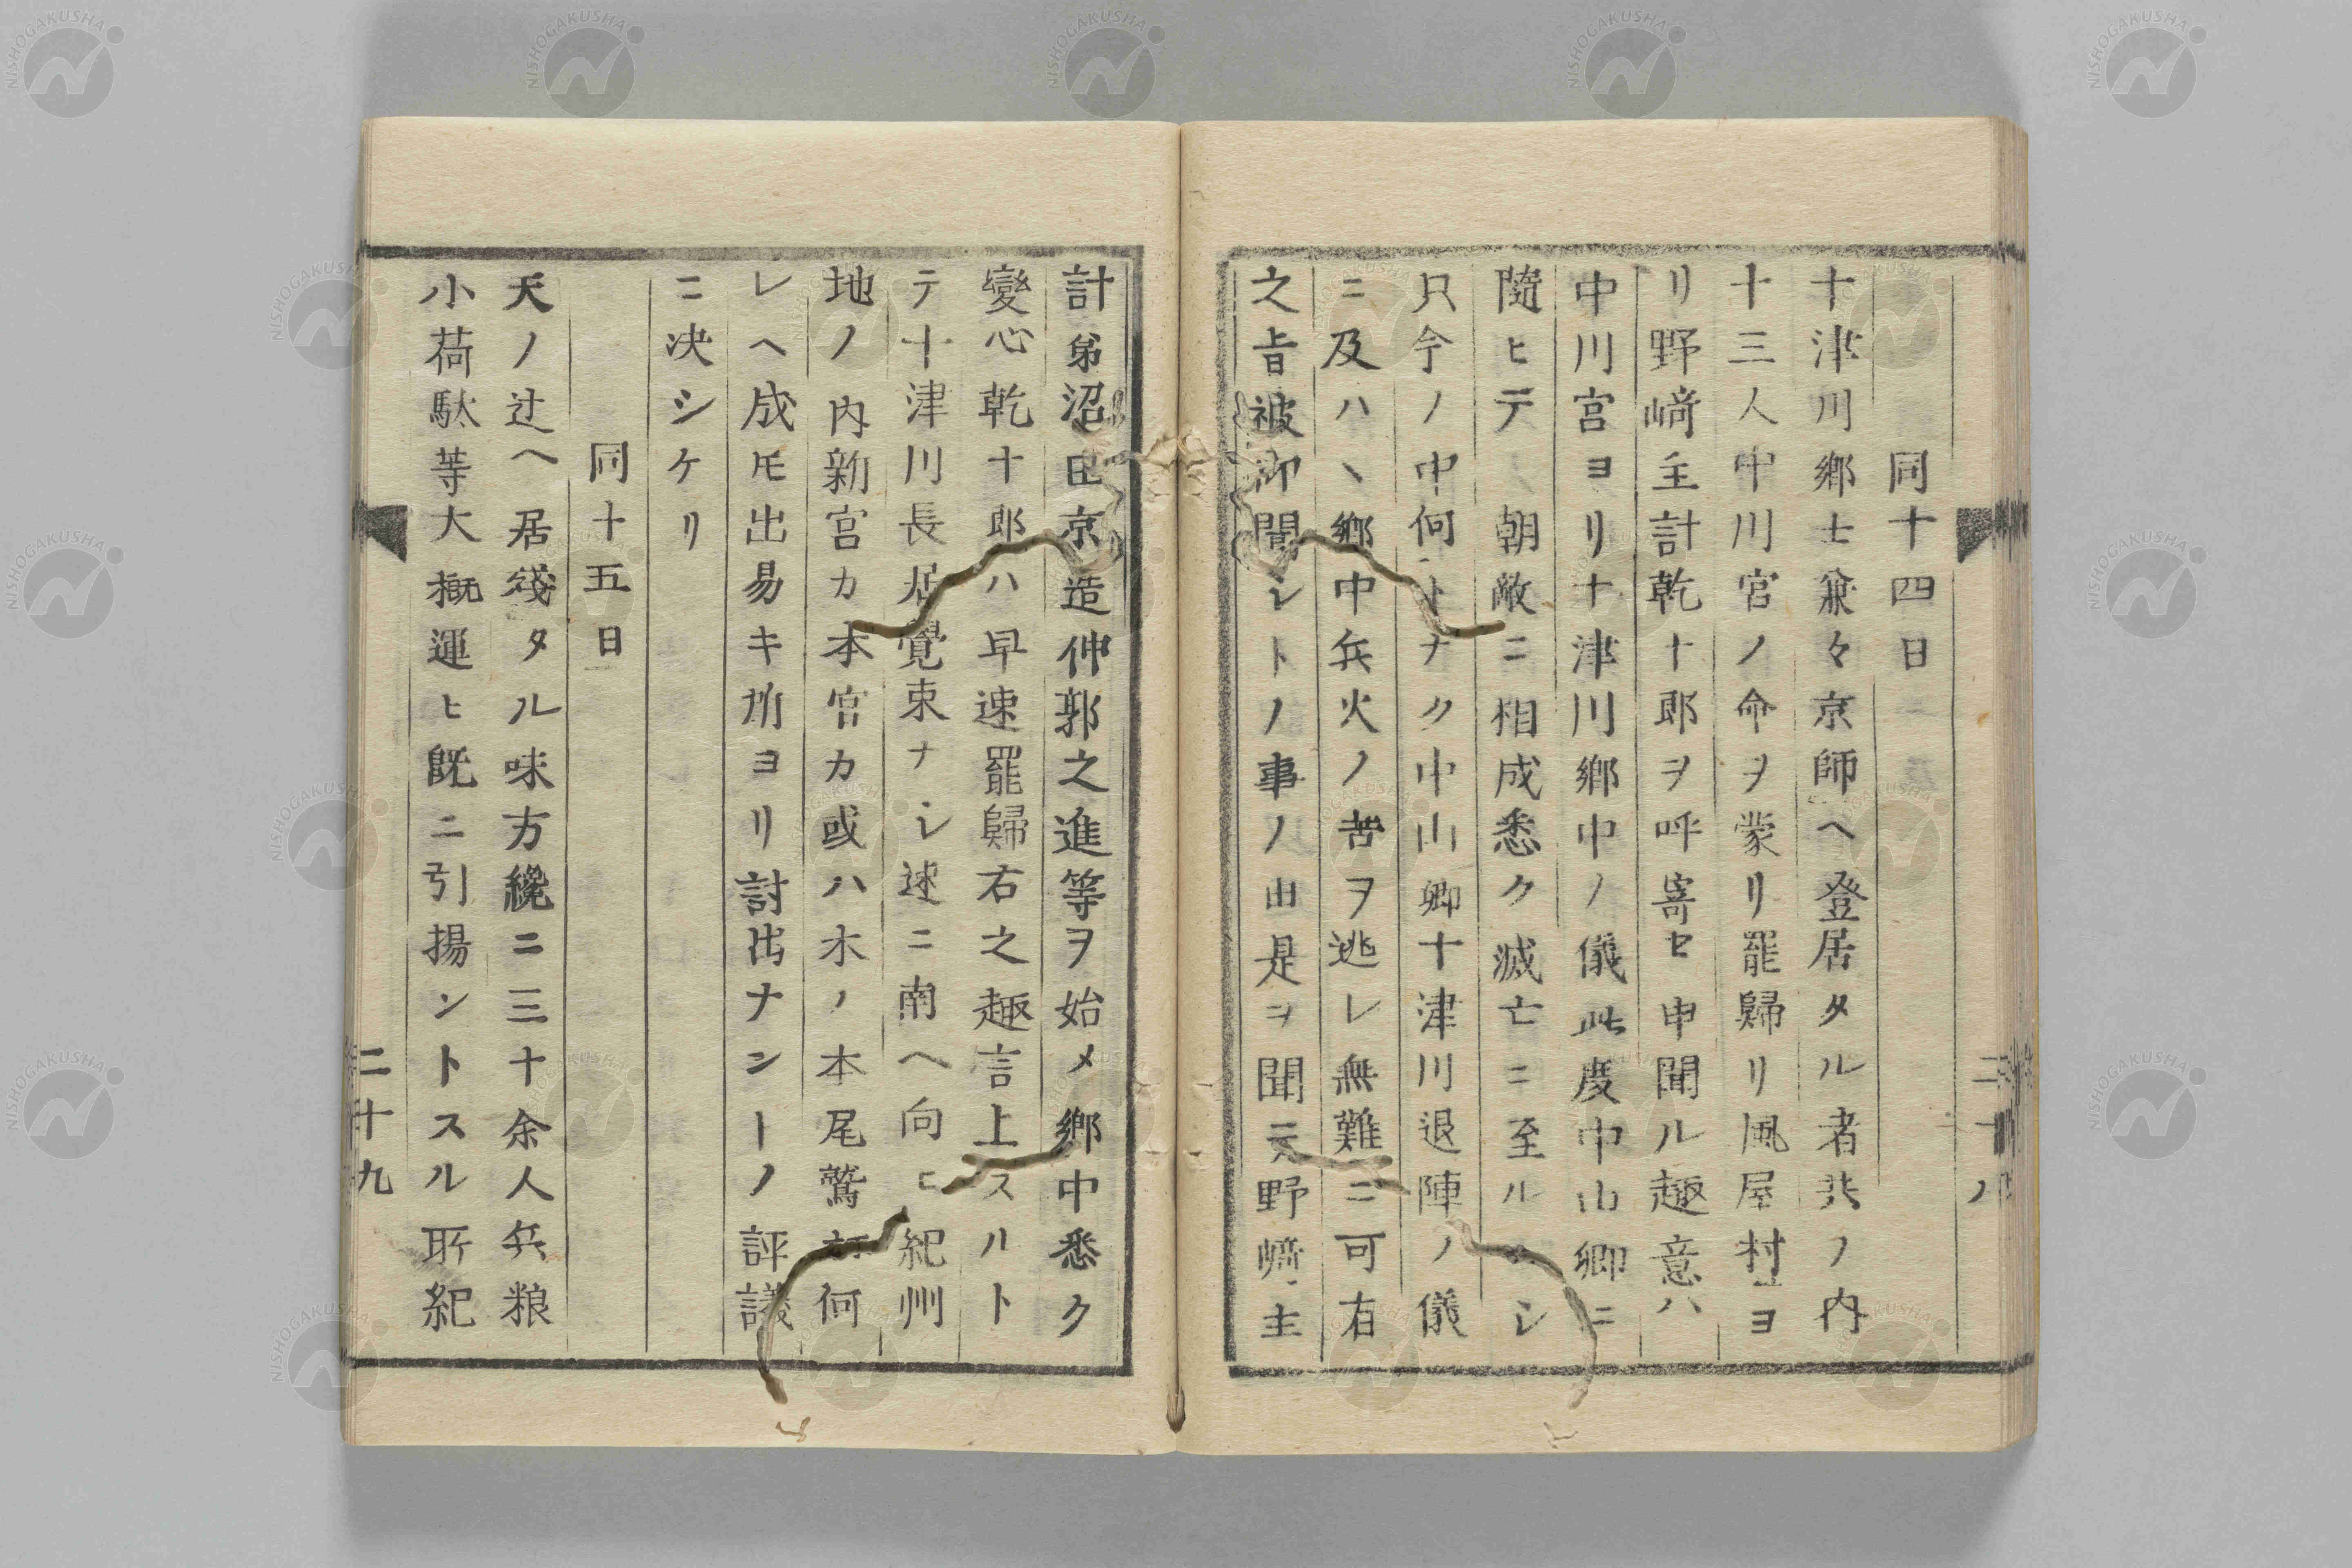 同十四日
十津川郷士兼々京師ヘ登居タル者共ノ内
十三人中川宮ノ命ヲ蒙リ罷歸リ風屋村ヨ
リ野﨑主計乾十郎ヲ呼寄セ申聞ル趣意ハ
中川宮ヨリ十津川郷中ノ儀此度中山卿ニ
隨ヒテ朝敵ニ相成悉ク滅亡ニ至ルヘシ
只今ノ中何トナク中山卿十津川退陣ノ儀
ニ及ハヽ郷中兵火ノ苦ヲ逃レ無難ニ可有
之旨被仰聞シトノ事ノ由是ヲ聞テ野﨑主
二十八
計弟沼田京造仲郭之進等ヲ始メ郷中悉ク
變心乾十郎ハ早速罷歸右之趣言上スルト
テ十津川長居覺束ナシ速ニ南ヘ向ヒ紀州
地ノ内新宮カ本宮カ或ハ木ノ本尾鷲何
レヘ成𪜈出易キ所ヨリ討出ナンーノ評議
ニ决シケリ
同十五日
天ノ辻ヘ居殘タル味方纔ニ三十余人兵粮
小荷駄等大概運ヒ既ニ引揚ントスル所紀
二十九
NISHOGAKUSHA